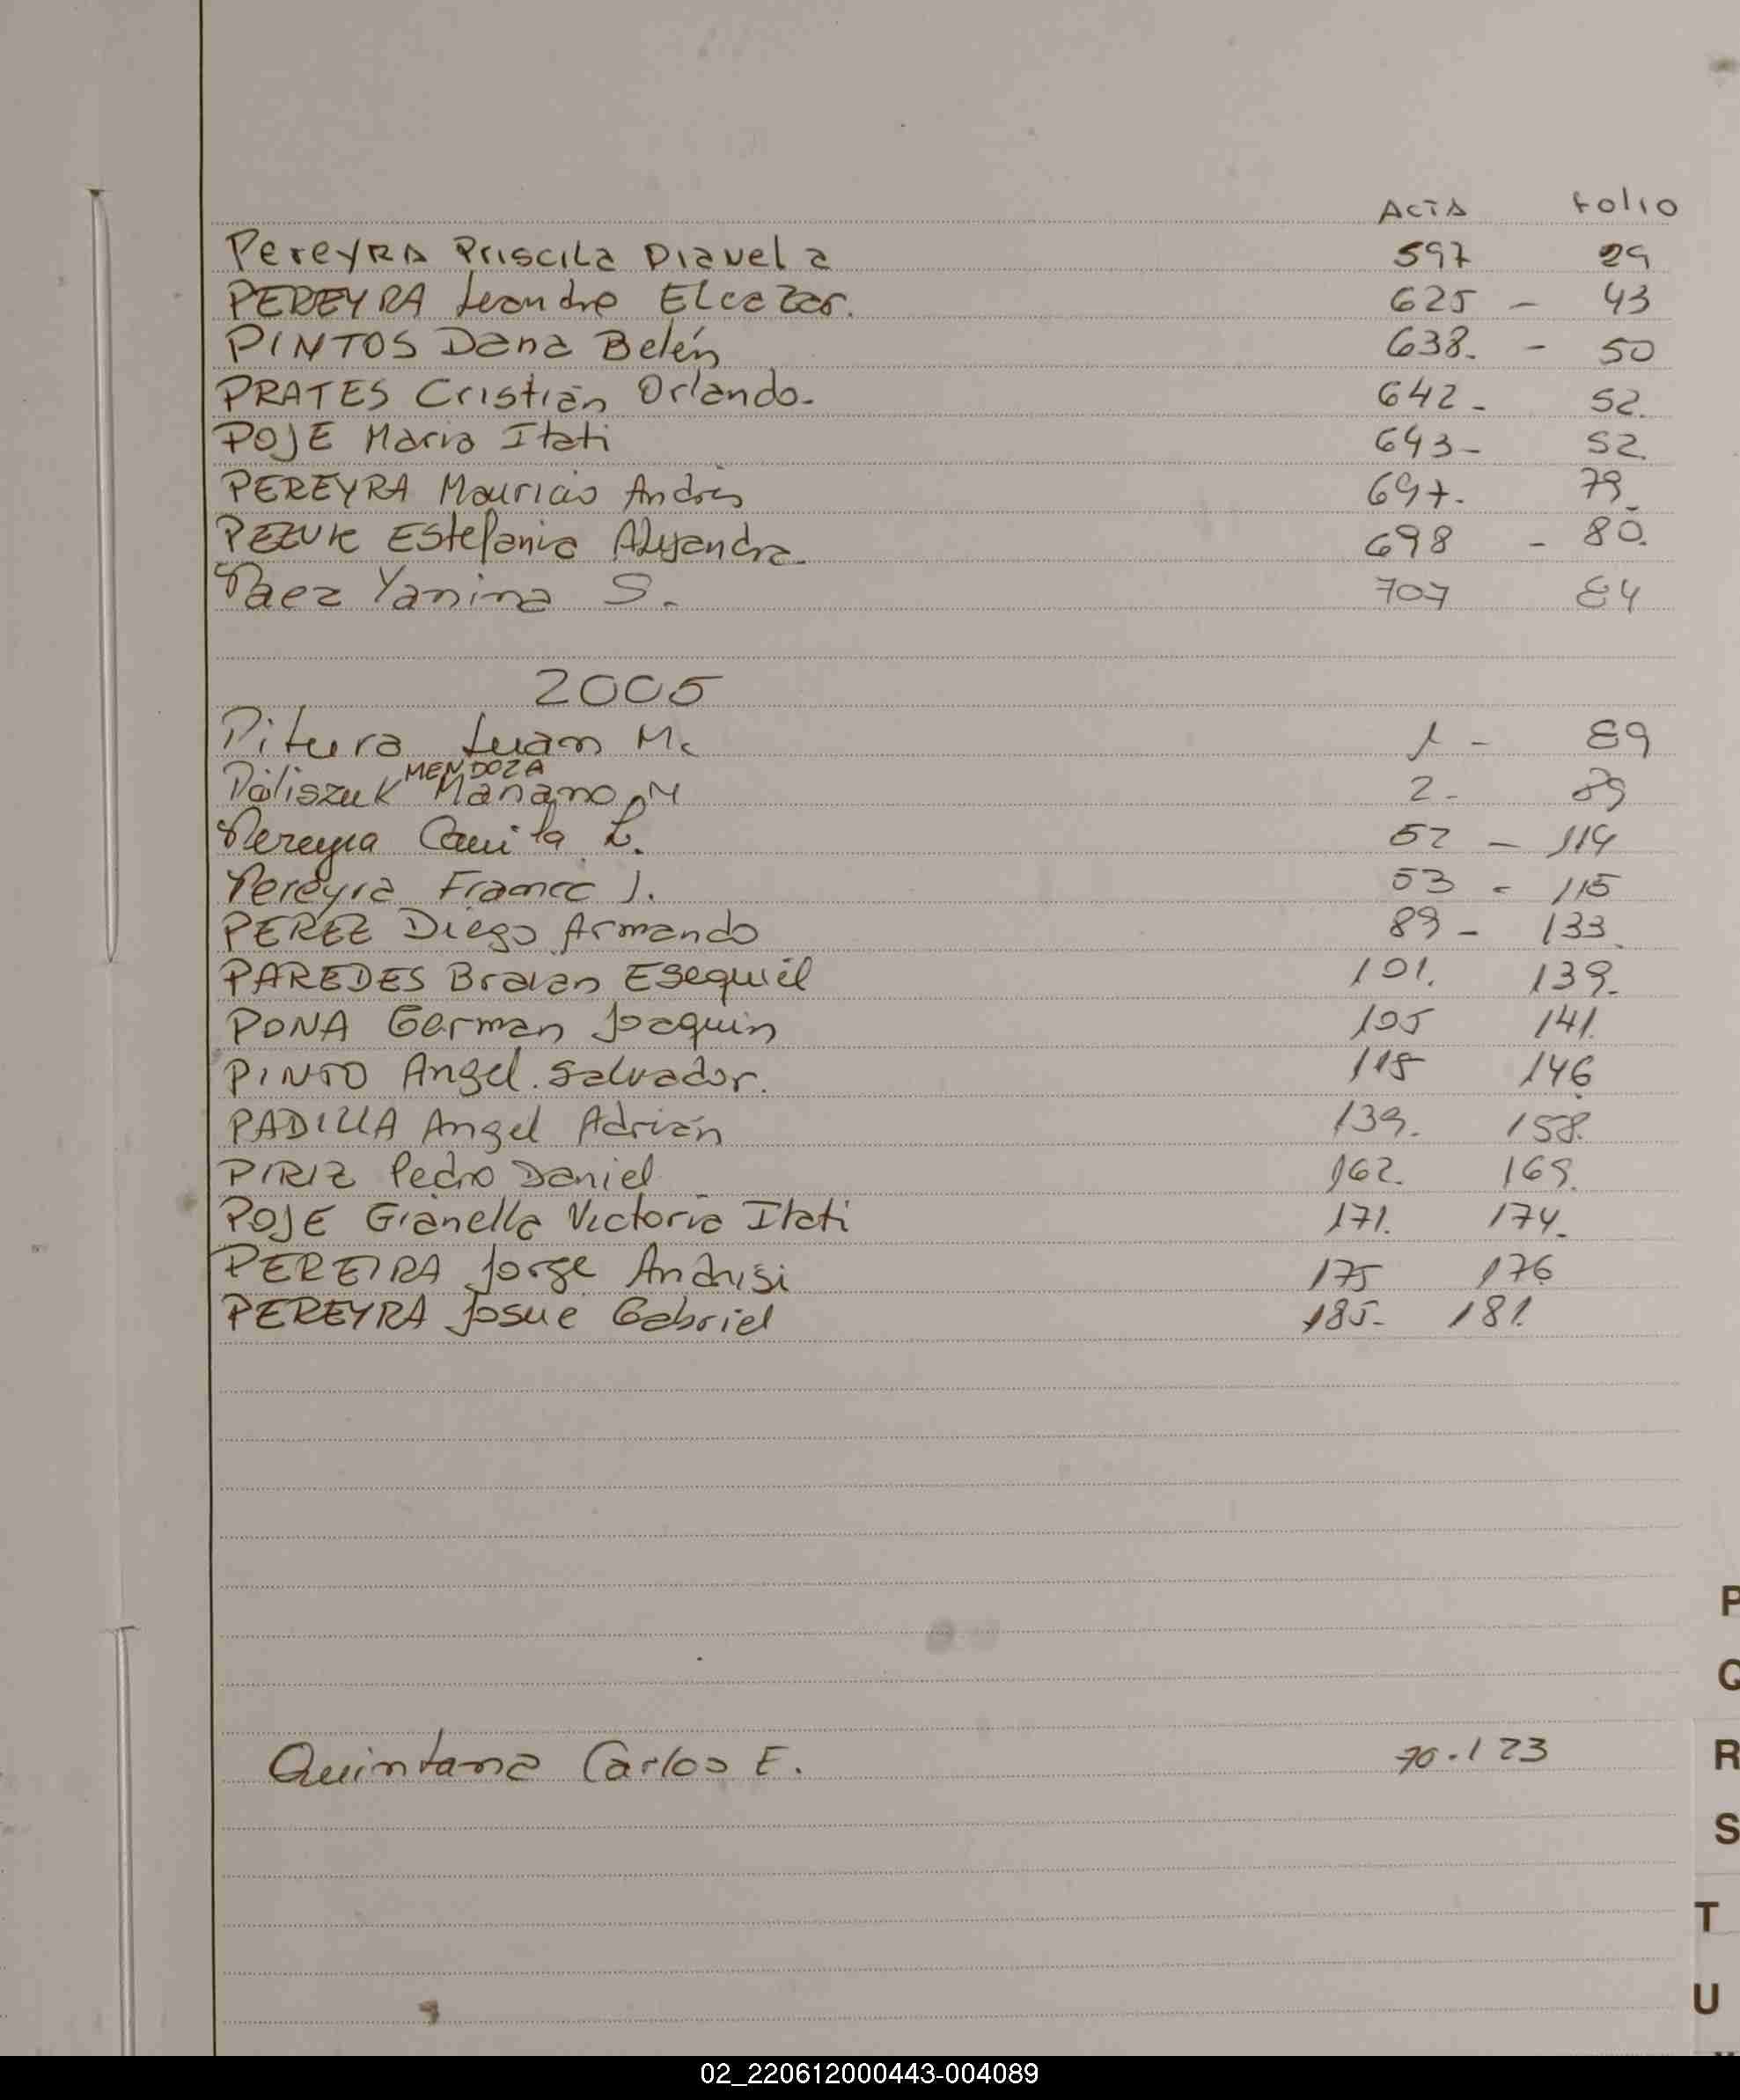 Acta Folio
Pereyra Priscila Diavela 597 29
PEREYRA Leandro Eleazar. 625 - 43
PINTOS Dana Belén 638. - 50
PRATES Cristián Orlando. 642 - 52.
POJE Maria Itati 643 - 52.
PEREYRA Mauricio Andrés 697. 79.
PEZUK Estefania Alejandra. 698 - 80.
Paez Yanina S. 707 84
2005
Pitura Luan M. 1 - 89
MENDOZA
Paliszuk Mariano M 2 - 89
Pereyra Camila L. 52 - 114
Pereyra Franco J. 53 - 115
PEREZ Diego Armando 89 - 133
PAREDES Braian Esequiel 101. 139.
PONA German Joaquin 105 141.
PINTO Angel Salvador. 115 146
PADILLA Angel Adrián 139. 158.
PIRIZ Pedro Daniel 162. 169.
POJE Gianella Victoria Itati 171. 174.
PEREIRA Jorge 175 176
PEREYRA Josué Gabriel 185. 181.
P
Q
Quintana Carlos E. 70 - 123
R
S
T
U
02_220612000443-004089